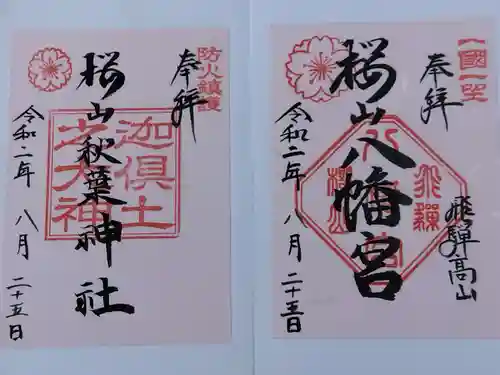 防火鎮護
奉拝
桜山秋葉神社
迦倶土之大神
令和二年 八月 二十五日
一國一社
奉拝
飛騨高山
桜山八幡宮
飛騨
令和二年 八月 二十五日